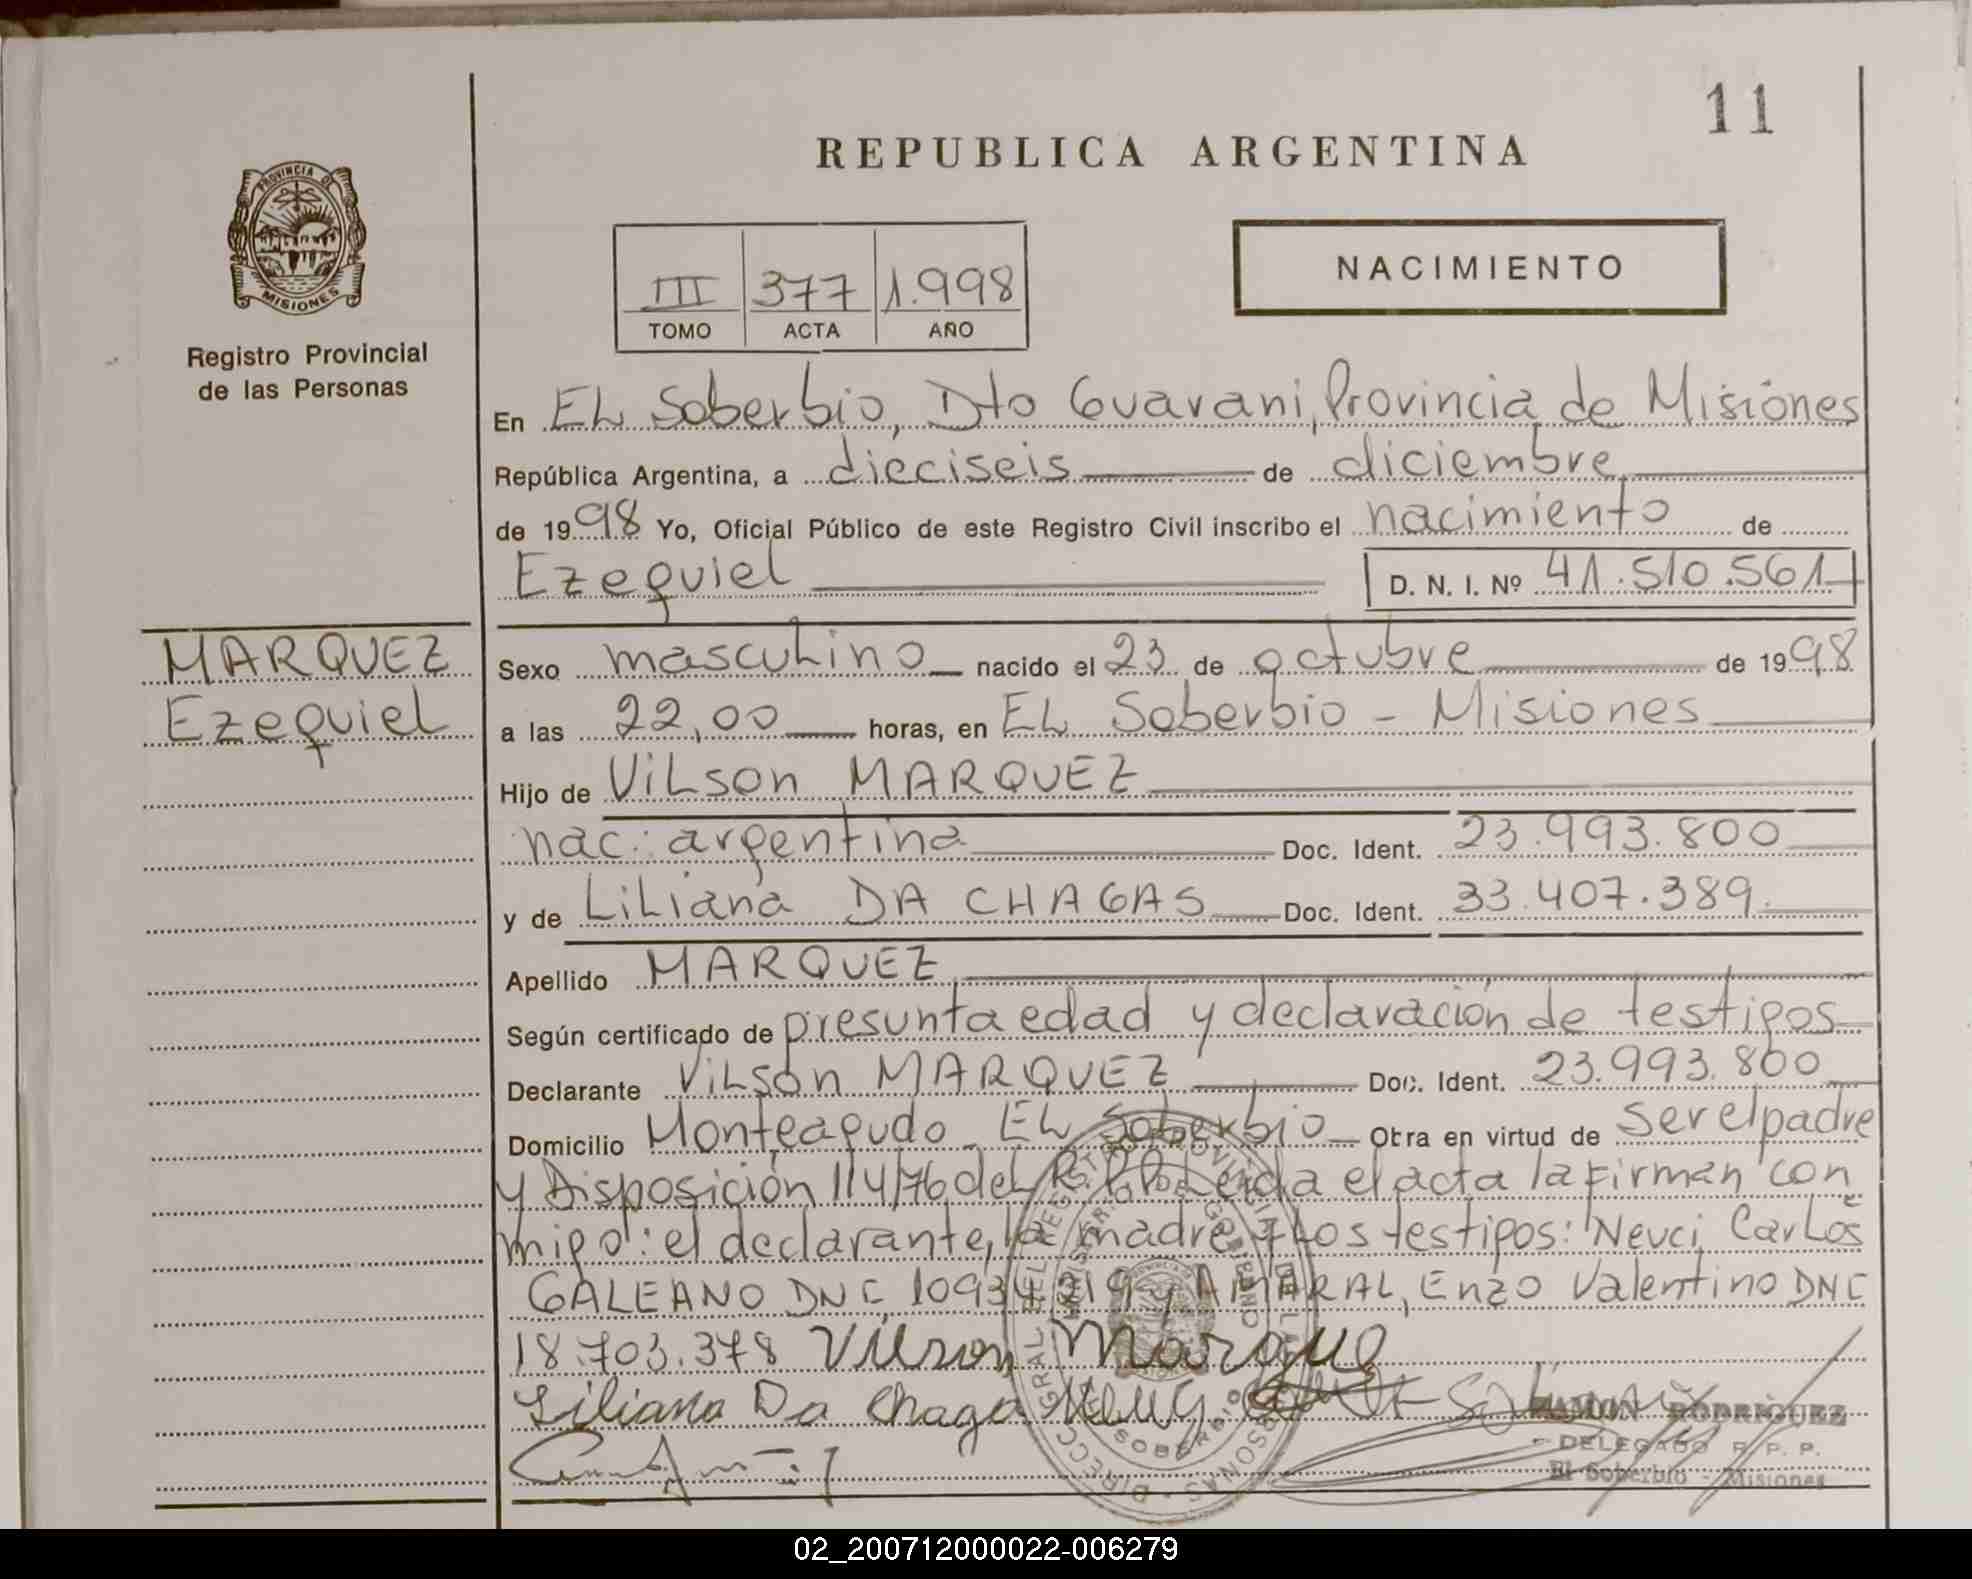 11
REPUBLICA ARGENTINA
PROVINCIA DE
MISIONES
Registro Provincial
de las Personas
III 377 1.998
TOMO ACTA AÑO
NACIMIENTO
En EL Soberbio, Dto Guarani, Provincia de Misiones
República Argentina, a dieciseis de diciembre
de 1998 Yo, Oficial Público de este Registro Civil inscribo el nacimiento de
Ezequiel D. N. I. Nº 41.510.561
MARQUEZ
Ezequiel
Sexo masculino nacido el 23 de octubre de 1998
a las 22,00 horas, en EL Soberbio - Misiones
Hijo de Vilson MARQUEZ
nac: argentina Doc. Ident. 23.993.800
y de Liliana DA CHAGAS Doc. Ident. 33.407.389.
Apellido MARQUEZ
Según certificado de presunta edad y declaración de testigos
Declarante Vilson MARQUEZ Doc. Ident. 23.993.800
Domicilio Monteagudo - EL Soberbio Obra en virtud de ser el padre
y Disposición 114/76 del R.P.P. Leida el acta la firman con
migo: el declarante, la madre y los testigos: Neuci, Carlos
GALEANO DNI 10934219 y AMARAL, Enzo Valentino DNI
18.703.378 Vilson Marquez
Liliana Da Chaga
RAMON RODRIGUEZ
DELEGADO R. P. P.
El Soberbio - Misiones
02_200712000022-006279